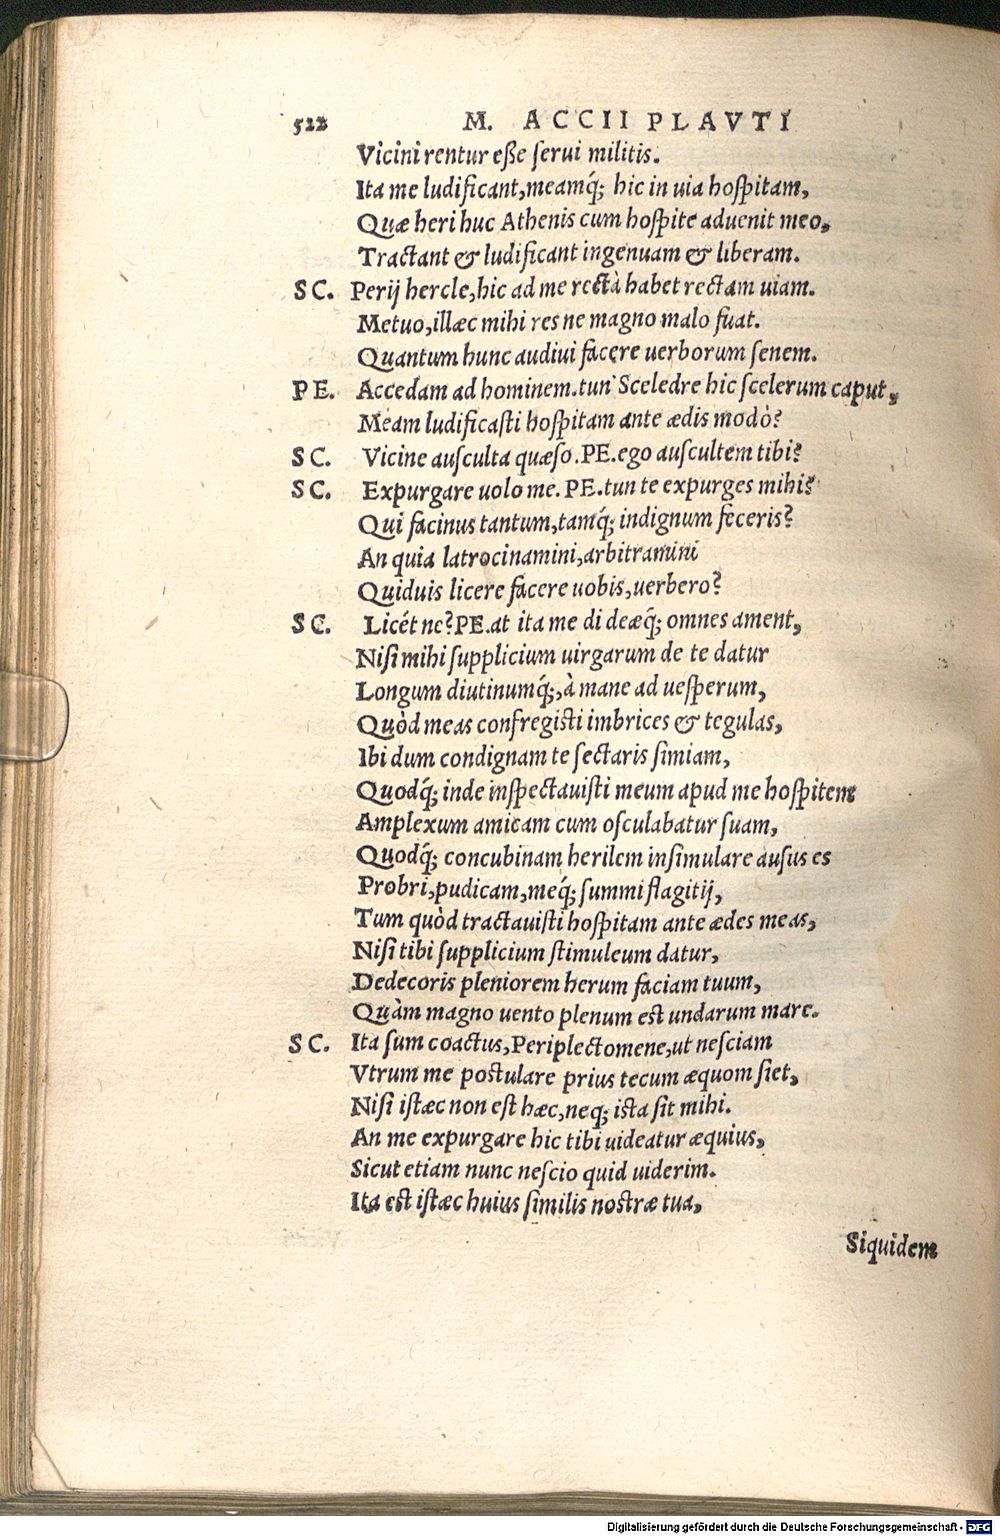 522 M. ACCII PLAVTI
Vicini rentur eße ſerui militis.
Ita me ludificant,meamq́; hic in uia hoſpitam,
Quæ heri huc Athenis cum hoſpite aduenit meo,
Tractant & ludificant ingenuam & liberam.
SC. Perij hercle,hic ad me rectà habet rectam uiam.
Metuo,illæc mihi res ne magno malo fuat.
Quantum hunc audiui facere uerborum ſenem.
PE. Accedam ad hominem.tun' Sceledre hic ſcelerum caput,
Meam ludificaſti hoſpitam ante ædis modò?
SC. Vicine auſculta quæſo.PE.ego auſcultem tibi?
SC. Expurgare uolo me. PE.tun te expurges mihi?
Qui facinus tantum,tamq́; indignum feceris?
An quia latrocinamini,arbitramini
Quiduis licere facere uobis,uerbero?
SC. Licét ne?PE.at ita me di deæq́; omnes ament,
Niſi mihi ſupplicium uirgarum de te datur
Longum diutinumq́;,à mane ad ueſperum,
Quòd meas confregiſti imbrices & tegulas,
Ibi dum condignam te ſectaris ſimiam,
Quodq́; inde inſpectauiſti meum apud me hoſpitem
Amplexum amicam cum oſculabatur ſuam,
Quodq́; concubinam herilem inſimulare auſus es
Probri,pudicam,meq́; ſummi flagitij,
Tum quòd tractauiſti hoſpitam ante ædes meas,
Niſi tibi ſupplicium ſtimuleum datur,
Dedecoris pleniorem herum faciam tuum,
Quàm magno uento plenum eſt undarum mare.
SC. Ita ſum coactus,Periplectomene,ut neſciam
Vtrum me poſtulare prius tecum æquom ſiet,
Niſi iſtæc non eſt hæc,neq; iſta ſit mihi.
An me expurgare hic tibi uideatur æquius,
Sicut etiam nunc neſcio quid uiderim.
Ita eſt iſtæc huius ſimilis noſtræ tua,
Siquidem
Digitalisierung gefördert durch die Deutsche Forschungsgemeinschaft - DFG